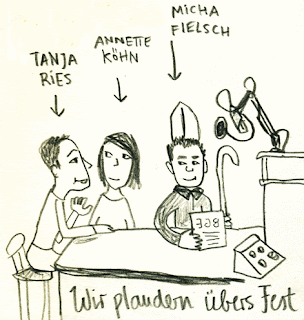 MICHA
FIELSCH
ANNETTE
KÖHN
TANJA
RIES
BGE
Wir plaudern übers Fest